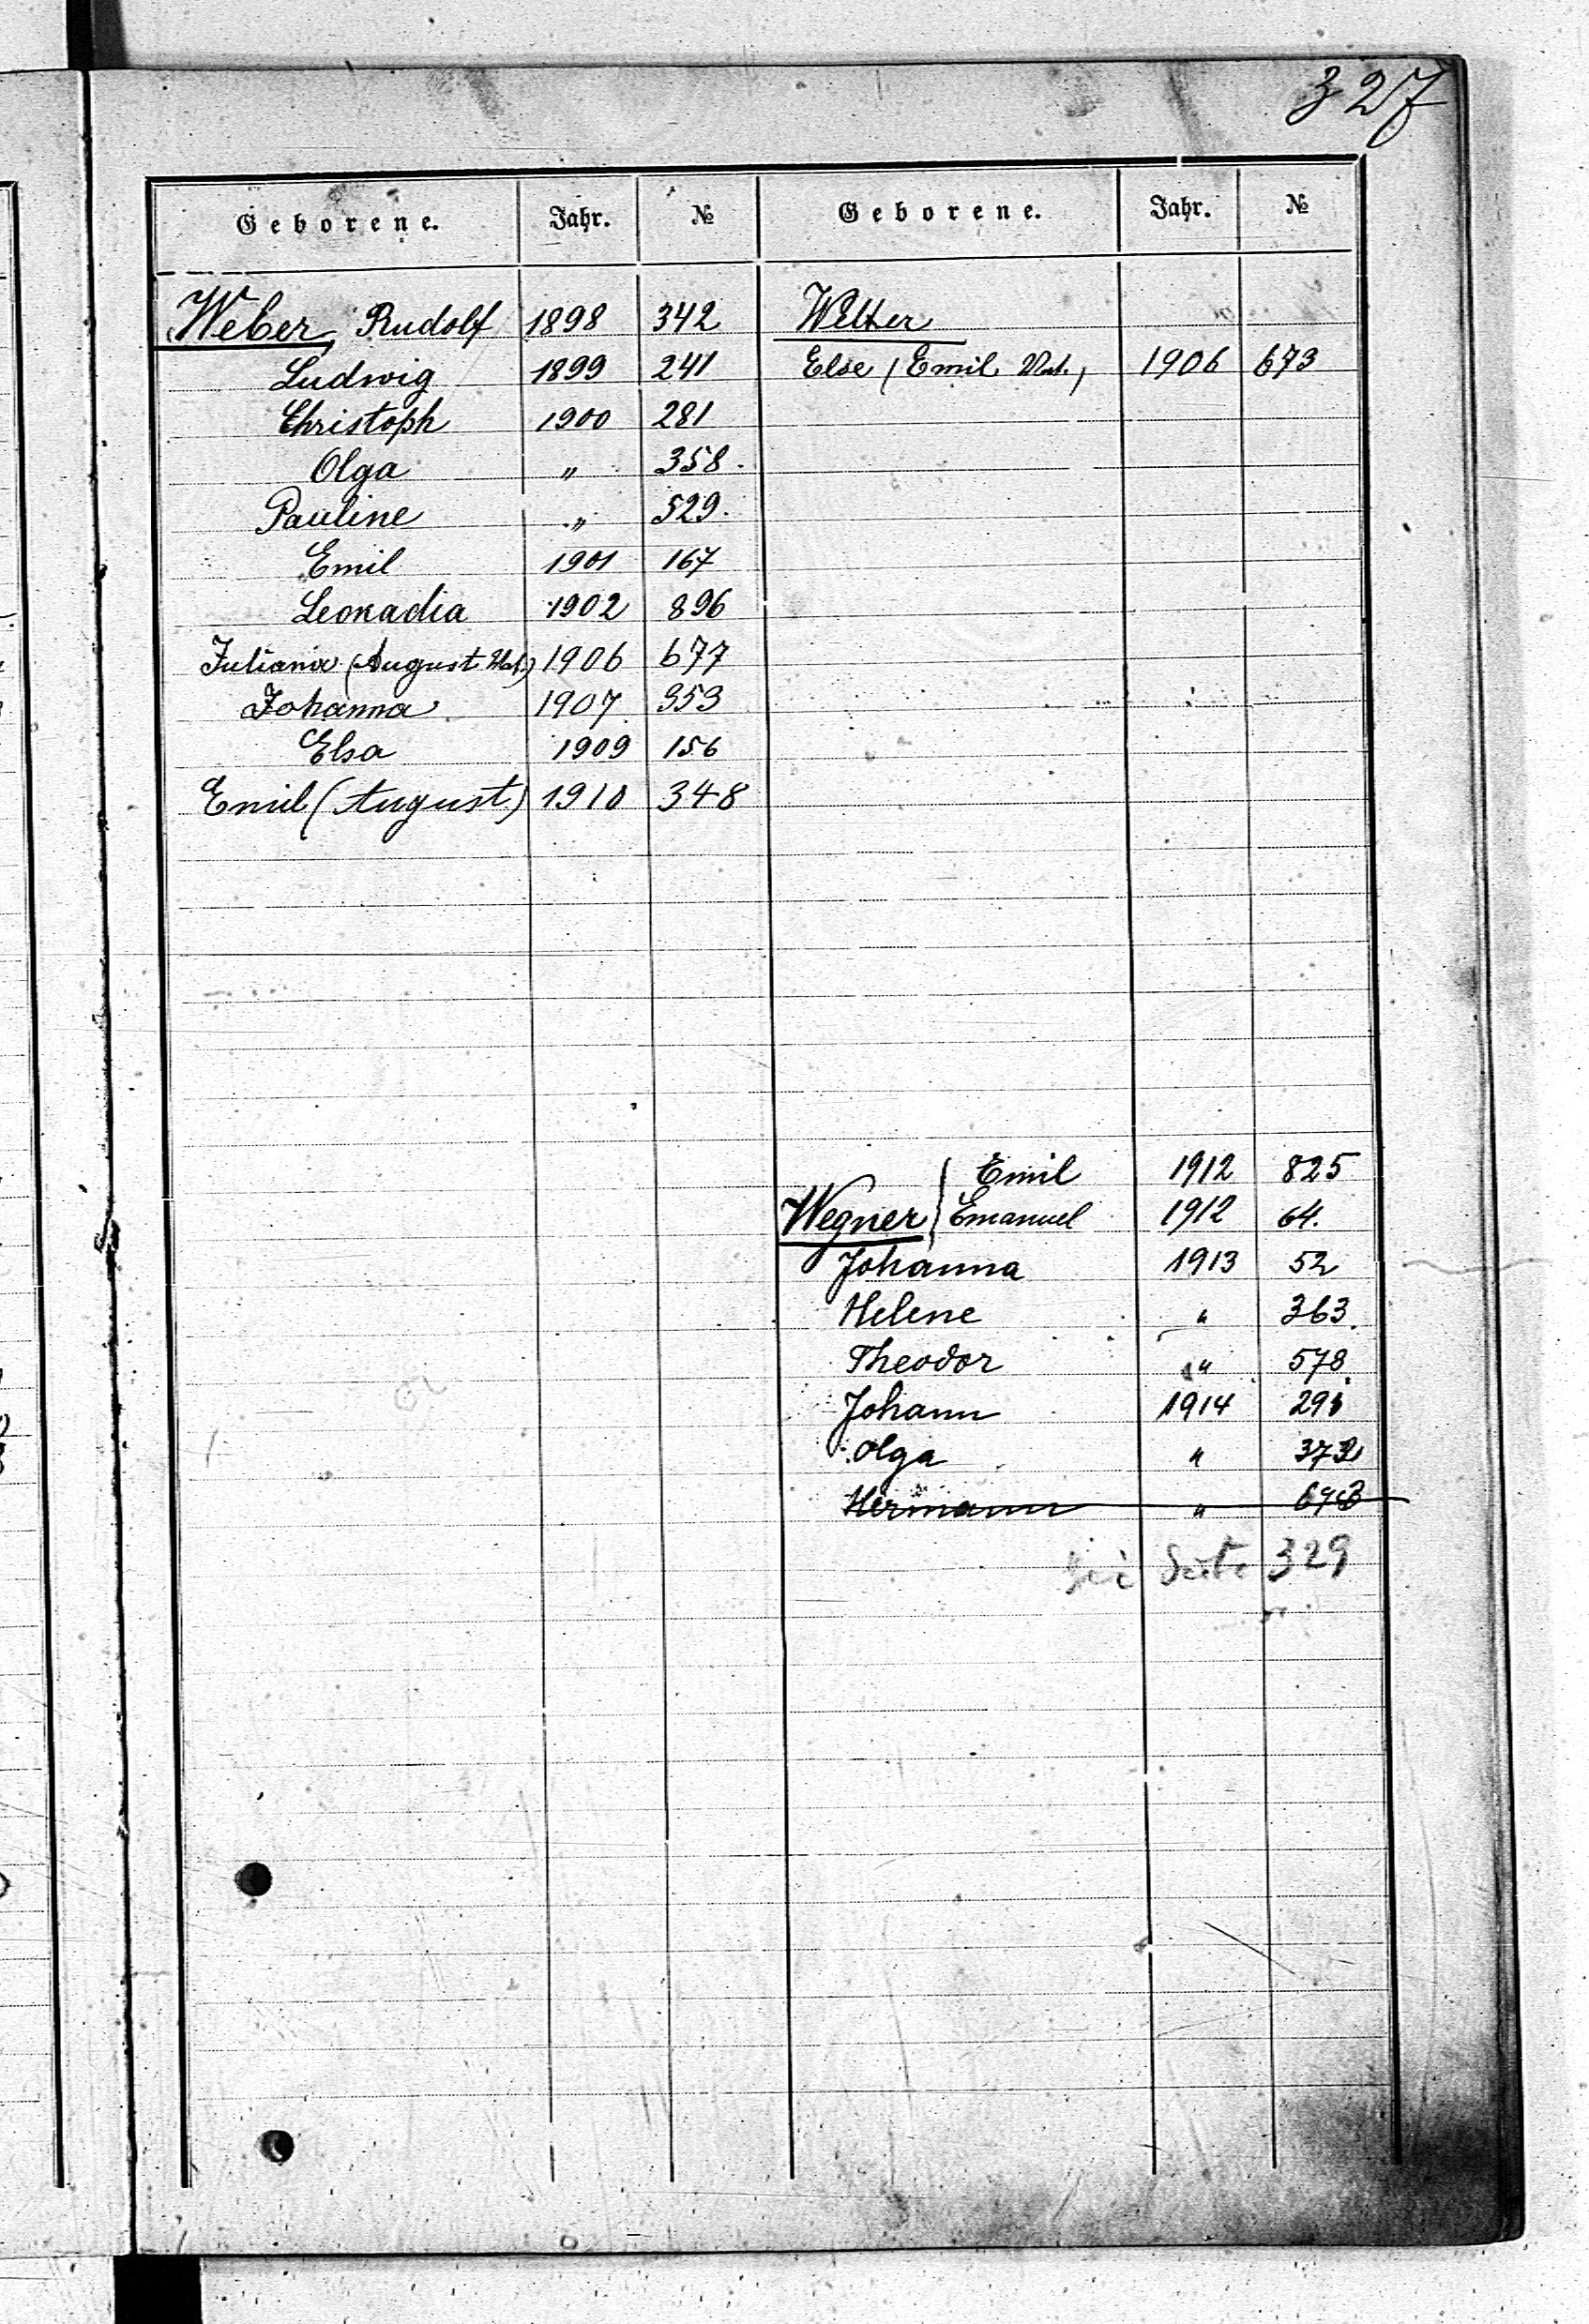 327
Geborene. Jahr. № Geborene. Jahr. №
Weber, Rudolf 1898 342
Ludwig 1899 241
Christoph 1900 281
Olga " 358.
Pauline " 529.
Emil 1901 167
Leokadia 1902 896
Juliana (August 1906 677
Johanna 1907 353
Elsa 1909 156
Emil (August) 1910 348
Welter
Else (Emil 1906 673
Emil 1912 825
Wegner Emanuel 1912 64.
Johanna 1913 52
Helene " 363.
Theodor " 578.
Johann 1914
Olga " 372
Hermann "
Seite 329